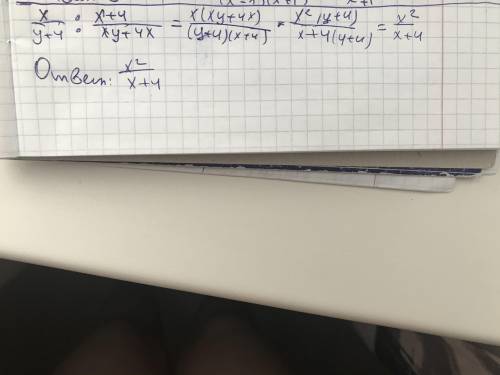 x/(y+4) : (x+4)/(xy+4x) = x(xy+4x)/((y+4)(x+4)) = x²(y+4)/(x+4(y+4)) = x²/(x+4)
Ответ: x²/(x+4)